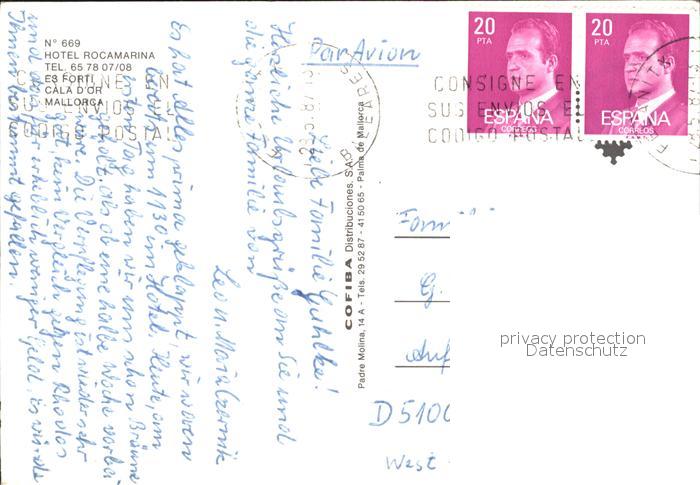 N° 669
HOTEL ROCAMARINA
TEL. 65 78 07/08
ES FORTI
CALA D'OR
MALLORCA
Par Avion
20
PTA
ESPAÑA
CORREOS
20
PTA
ESPAÑA
CORREOS
CONSIGNE EN
SUS ENVIOS EL
CODIGO POSTAL
CONSIGNE EN
SUS ENVIOS EL
CODIGO POSTAL
BALEARES
COFIBA Distribuciones, S.A.
Padre Molina, 14 A - Tels. 29 52 87 - 41 50 65 - Palma de Mallorca
Liebe Familie
Herzliche Urlaubsgrüße an Sie und
die ganze Familie von
Leo u. Maria
Es hat alles prima geklappt, wir waren
um 1130 im Hotel. Heute, am
Tag haben wir uns schon Bräune
als ob eine halbe Woche vorbei
wäre. Die Verpflegung ist wieder sehr
gut, beim Vergleich gegen Rhodos
und das für erheblich weniger Geld. Es würde
Ihnen bestimmt gefallen.
Fam
G.
Auf
D 5100
West
privacy protection
Datenschutz